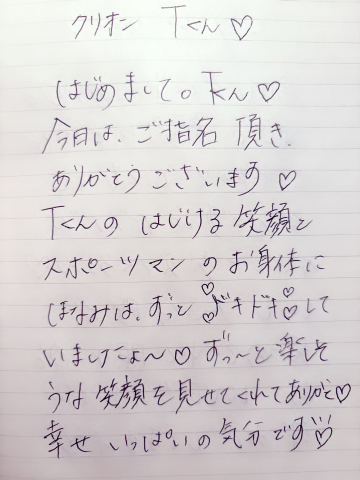 クリオン Tくん♡
はじめまして。Tくん♡
今日は、ご指名 頂き、
ありがとうございます♡
Tくんの はじける 笑顔と
スポーツマン のお身体に
ほなみは、ずっと ドキドキして
いましたょ〜♡ ずっ〜と楽しそ
うな 笑顔を見せてくれてありがと♡
幸せ いっぱいの気分です♡